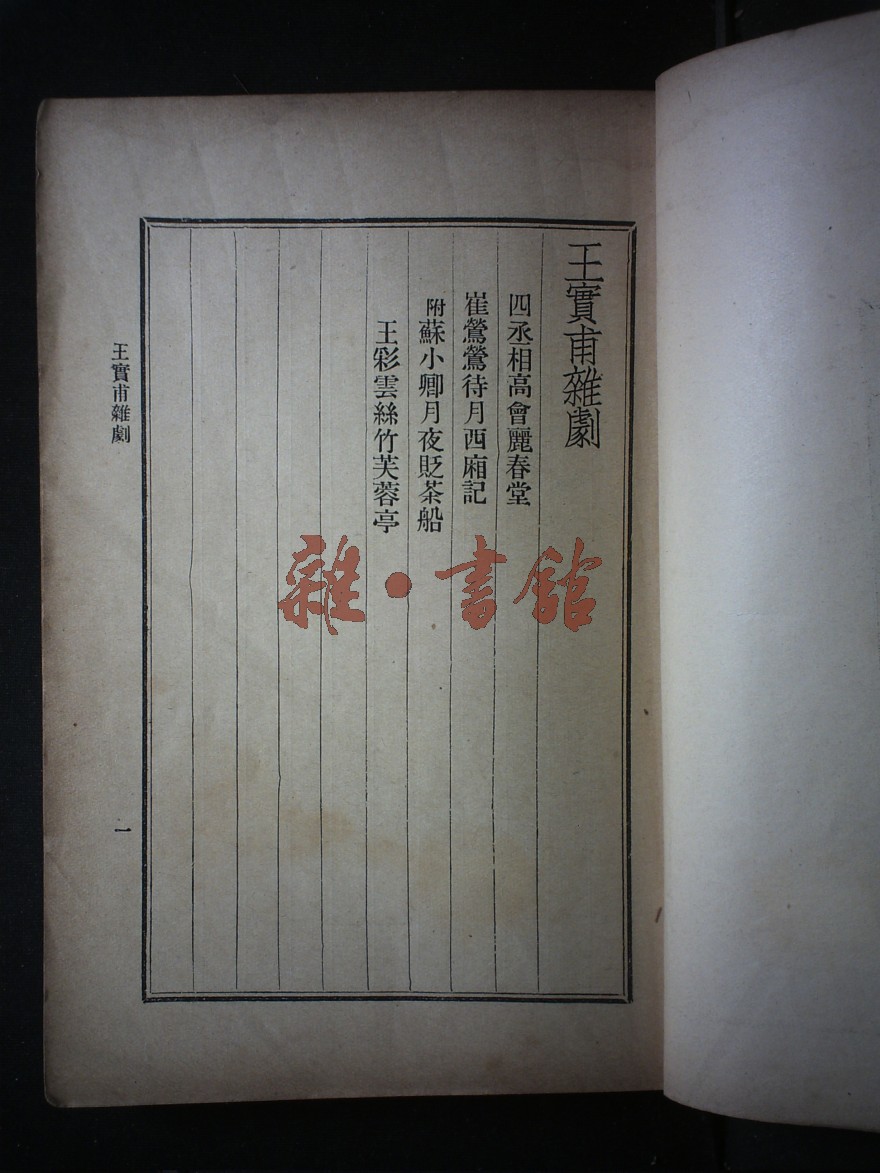 王實甫雜劇
四丞相高會麗春堂
崔鶯鶯待月西廂記
附蘇小卿月夜販茶船
王彩雲絲竹芙蓉亭
王實甫雜劇
一
雜·書館